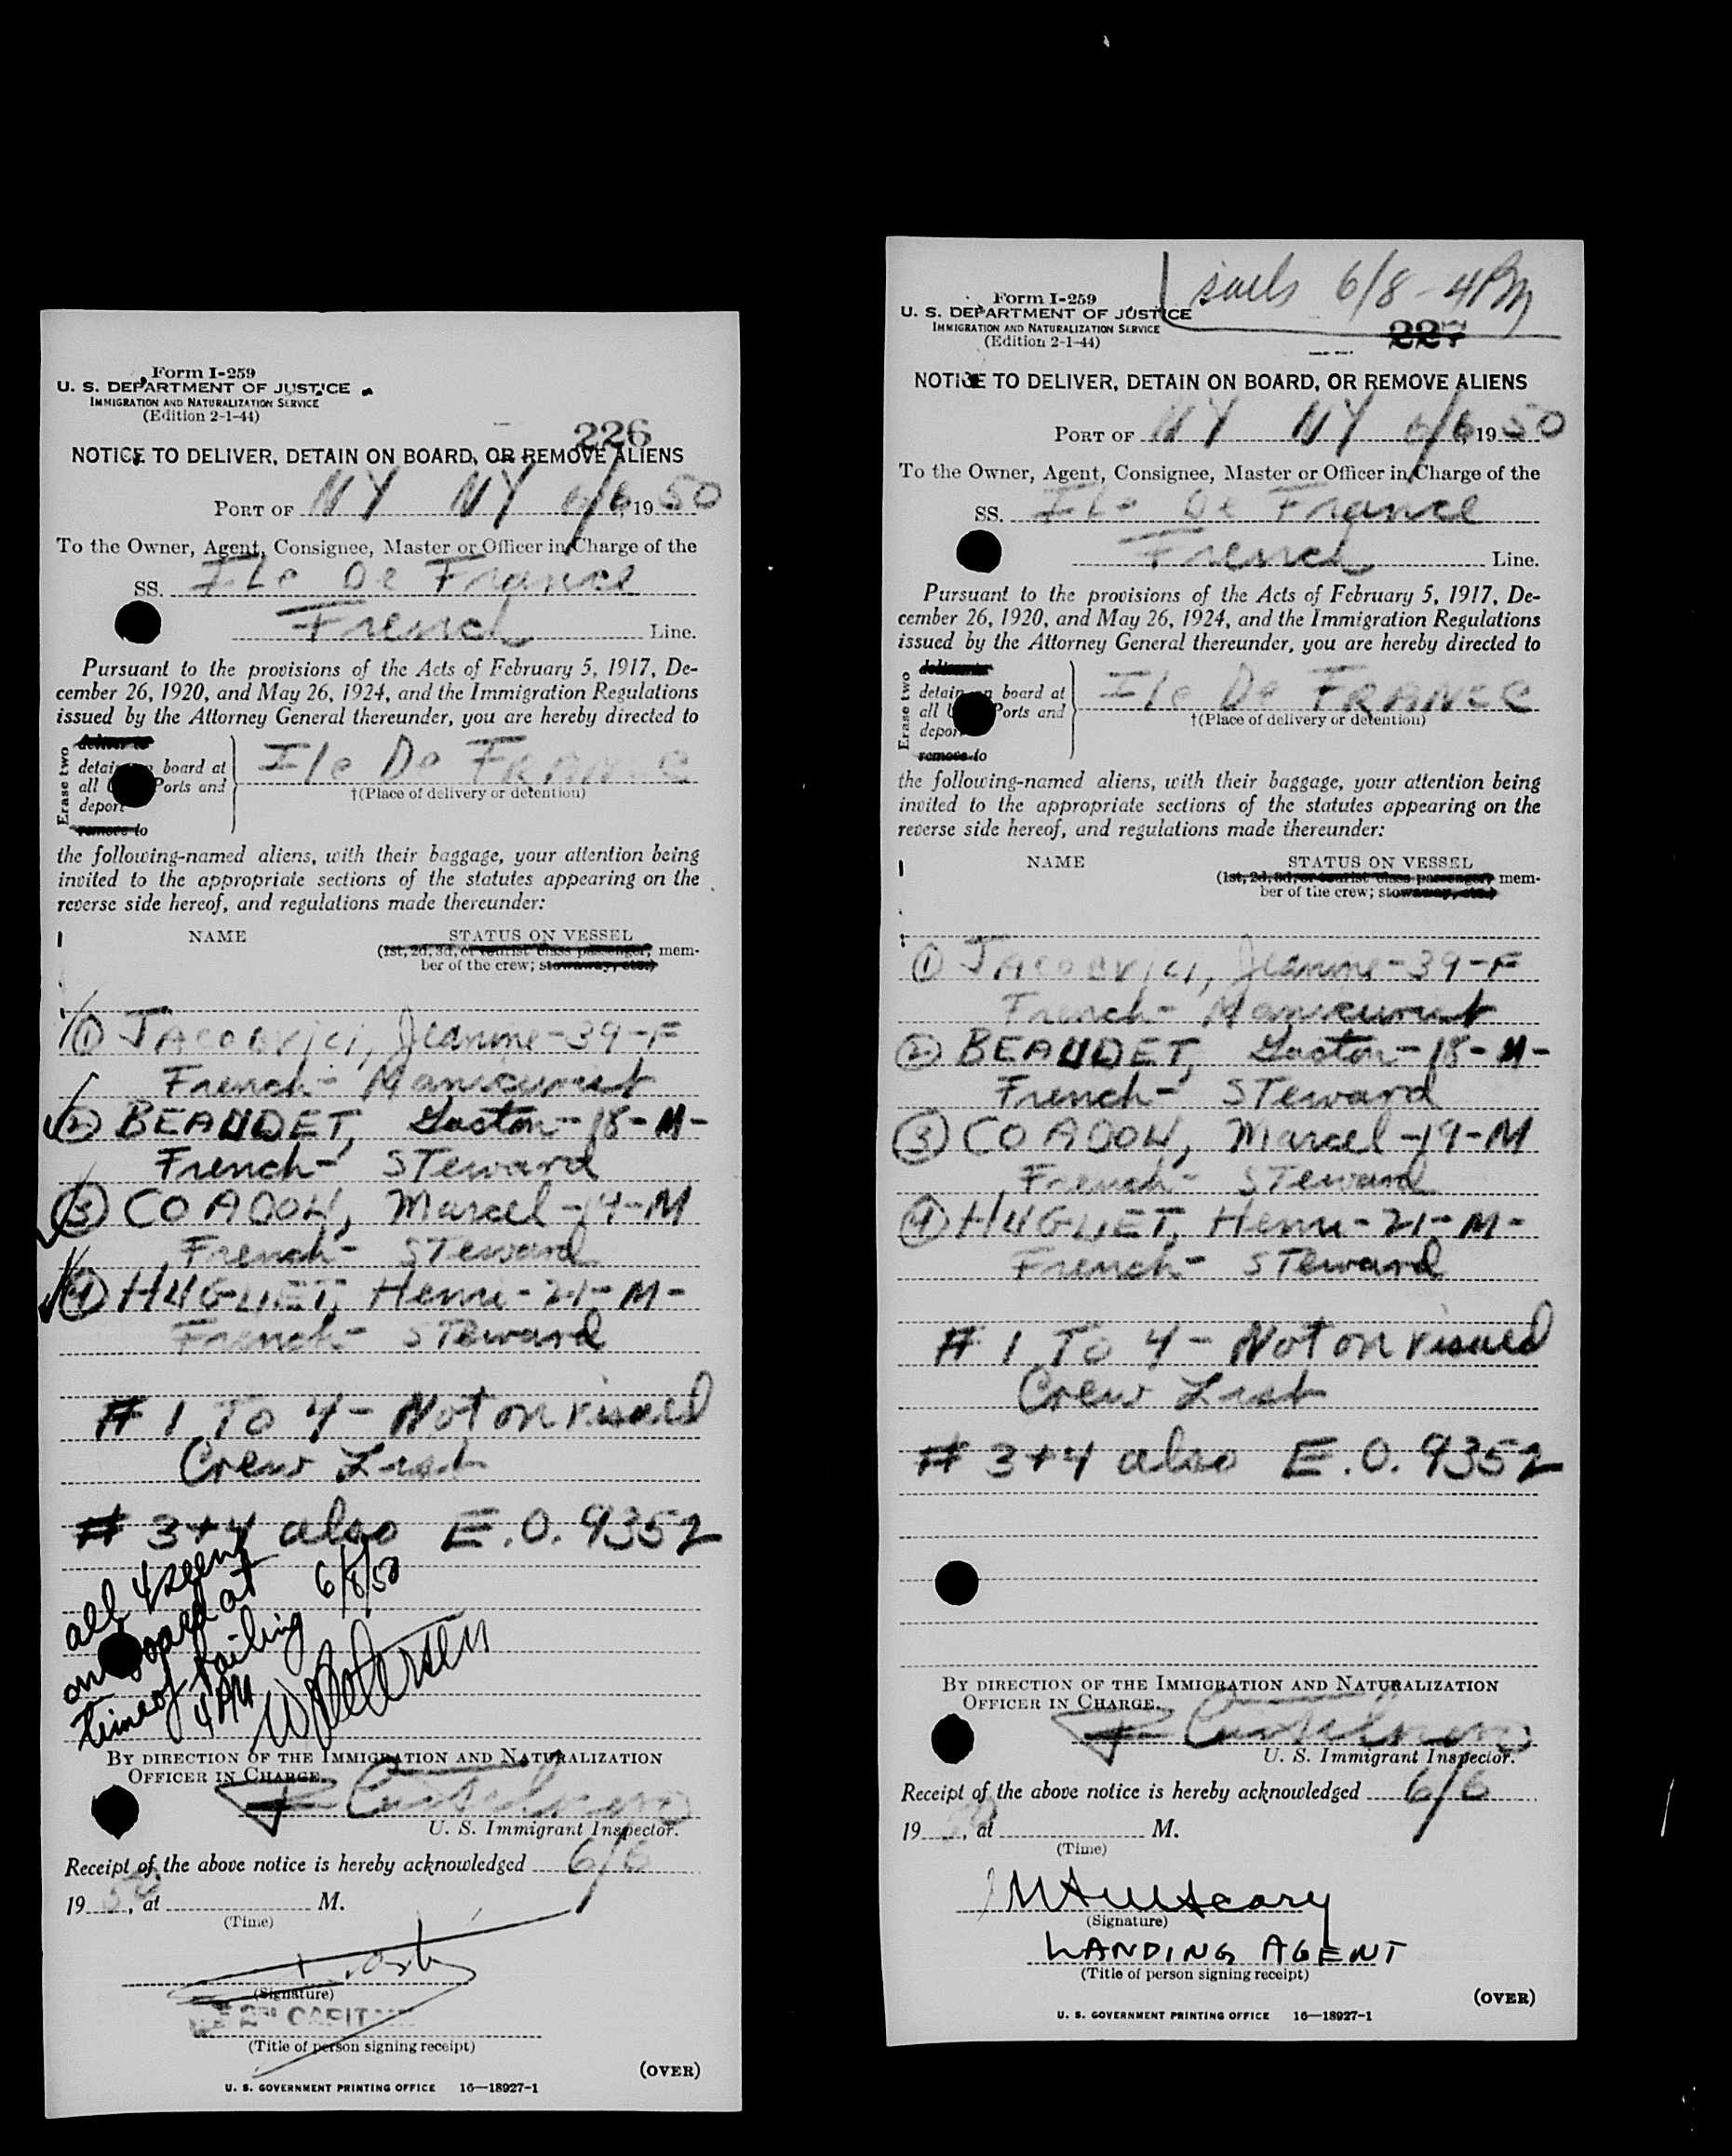 Form I-259
U. S. DEPARTMENT OF JUSTICE
IMMIGRATION AND NATURALIZATION SERVICE
(Edition 2-1-44)
226
NOTICE TO DELIVER, DETAIN ON BOARD, OR REMOVE ALIENS
PORT OF NY NY 6/6, 1950
To the Owner, Agent, Consignee, Master or Officer in Charge of the
SS. Ile De France
French Line.
Pursuant to the provisions of the Acts of February 5, 1917, De-
cember 26, 1920, and May 26, 1924, and the Immigration Regulations
issued by the Attorney General thereunder, you are hereby directed to
Erase two
deliver to
detain on board at
all U Ports and
deport
remove to
Ile De FRANCE
†(Place of delivery or detention)
the following-named aliens, with their baggage, your attention being
invited to the appropriate sections of the statutes appearing on the
reverse side hereof, and regulations made thereunder:
NAME STATUS ON VESSEL
(1st, 2d, 3d, or tourist class passenger, mem-
ber of the crew; stowaway, etc.)
① JACOBVICI, Jeanine-39-F
French- Manicurist
② BEAUDET, Gaston-18-M-
French- STeward
③ COADOU, Marcel-19-M
French- STeward
④ HUGUET, Henri-21-M-
French- STeward
# 1 To 4- Not on visaed
Crew List
# 3+4 also E.O. 9352
all 4 seen
on board at
time of sailing 6/8/50
4 PM
W Petersen
BY DIRECTION OF THE IMMIGRATION AND NATURALIZATION
OFFICER IN CHARGE.
U. S. Immigrant Inspector.
Receipt of the above notice is hereby acknowledged 6/6
1950, at M.
(Time)
(Signature)
2nd CAPIT
(Title of person signing receipt)
(OVER)
U. S. GOVERNMENT PRINTING OFFICE 16—18927-1
sails 6/8 - 4 PM
Form I-259
U. S. DEPARTMENT OF JUSTICE
IMMIGRATION AND NATURALIZATION SERVICE
(Edition 2-1-44)
227
NOTICE TO DELIVER, DETAIN ON BOARD, OR REMOVE ALIENS
PORT OF NY NY 6/6, 1950
To the Owner, Agent, Consignee, Master or Officer in Charge of the
SS. Ile De France
French Line.
Pursuant to the provisions of the Acts of February 5, 1917, De-
cember 26, 1920, and May 26, 1924, and the Immigration Regulations
issued by the Attorney General thereunder, you are hereby directed to
Erase two
deliver to
detain on board at
all U Ports and
deport
remove to
Ile De FRANCE
†(Place of delivery or detention)
the following-named aliens, with their baggage, your attention being
invited to the appropriate sections of the statutes appearing on the
reverse side hereof, and regulations made thereunder:
NAME STATUS ON VESSEL
(1st, 2d, 3d, or tourist class passenger, mem-
ber of the crew; stowaway, etc.)
① JACOBVICI, Jeanine-39-F
French- Manicurist
② BEAUDET, Gaston-18-M-
French- STeward
③ COADOU, Marcel-19-M
French- STeward
④ HUGUET, Henri-21-M-
French- STeward
# 1 To 4- Not on visaed
Crew List
# 3+4 also E.O. 9352
BY DIRECTION OF THE IMMIGRATION AND NATURALIZATION
OFFICER IN CHARGE.
U. S. Immigrant Inspector.
Receipt of the above notice is hereby acknowledged 6/6
1950, at M.
(Time)
(Signature)
LANDING AGENT
(Title of person signing receipt)
(OVER)
U. S. GOVERNMENT PRINTING OFFICE 16—18927-1